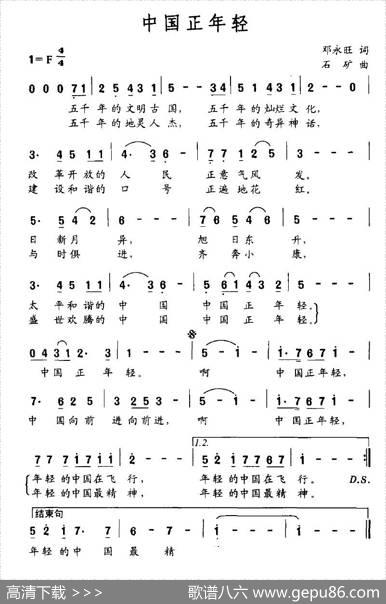 中国正年轻
1=F 4/4
邓永旺 词
石矿 曲
0 0 0 7 1 | 2 5 4 3 1 | 5 - - 3 4 | 5 5 4 3 1 | 2 - - - |
五千 年的文明古 国， 五千 年的灿烂文 化，
五千 年的地灵人 杰， 五千 年的奇异神 话，
3· 4 5 1 1 | 4· 3 6 - | 7 7 1 2 5 | 3 - - - |
改 革开放的 人 民 正意气风 发。
建 设和谐的 口 号 正遍地花 红。
5· 5 4 2 | 6 - - - | 7 6 5 4 | 5 - - - |
日 新月 异， 旭 日东 升，
与 时俱 进， 齐 奔小 康，
3· 4 5 1 1 | 4· 3 6 - | 5 5 1 4 3 2 | 1 - - - |
太 平和谐的 中 国 中国正年 轻。
盛 世欢腾的 中国 中国正年 轻。
0 4 3 1 2· 3 | 1 - - - | 5 - i - | i· 7 6 7 i |
中国 正年 轻。 啊 中国正年轻，
7· 6 2 5 | 3 2 5 3 - | 5 - i - | i· 7 6 7 i |
中 国向前 进向前进， 啊 中国正年轻，
1.2.
7 7 7 1 7 1 7 | 2 - - - | 5 5 2 1 7 7 6 7 | i - - - :|
年轻的中国在飞 行， 年轻的中国在飞 行。 D.S.
年轻的中国最精 神， 年轻的中国最精 神。
结束句
5 5 2 1 7· 7 | 6 - 7 - | i - - - | i - - - ‖
年轻的 中 国 最 精
高清下载 > >>>
歌谱八六 www.gepu86.com